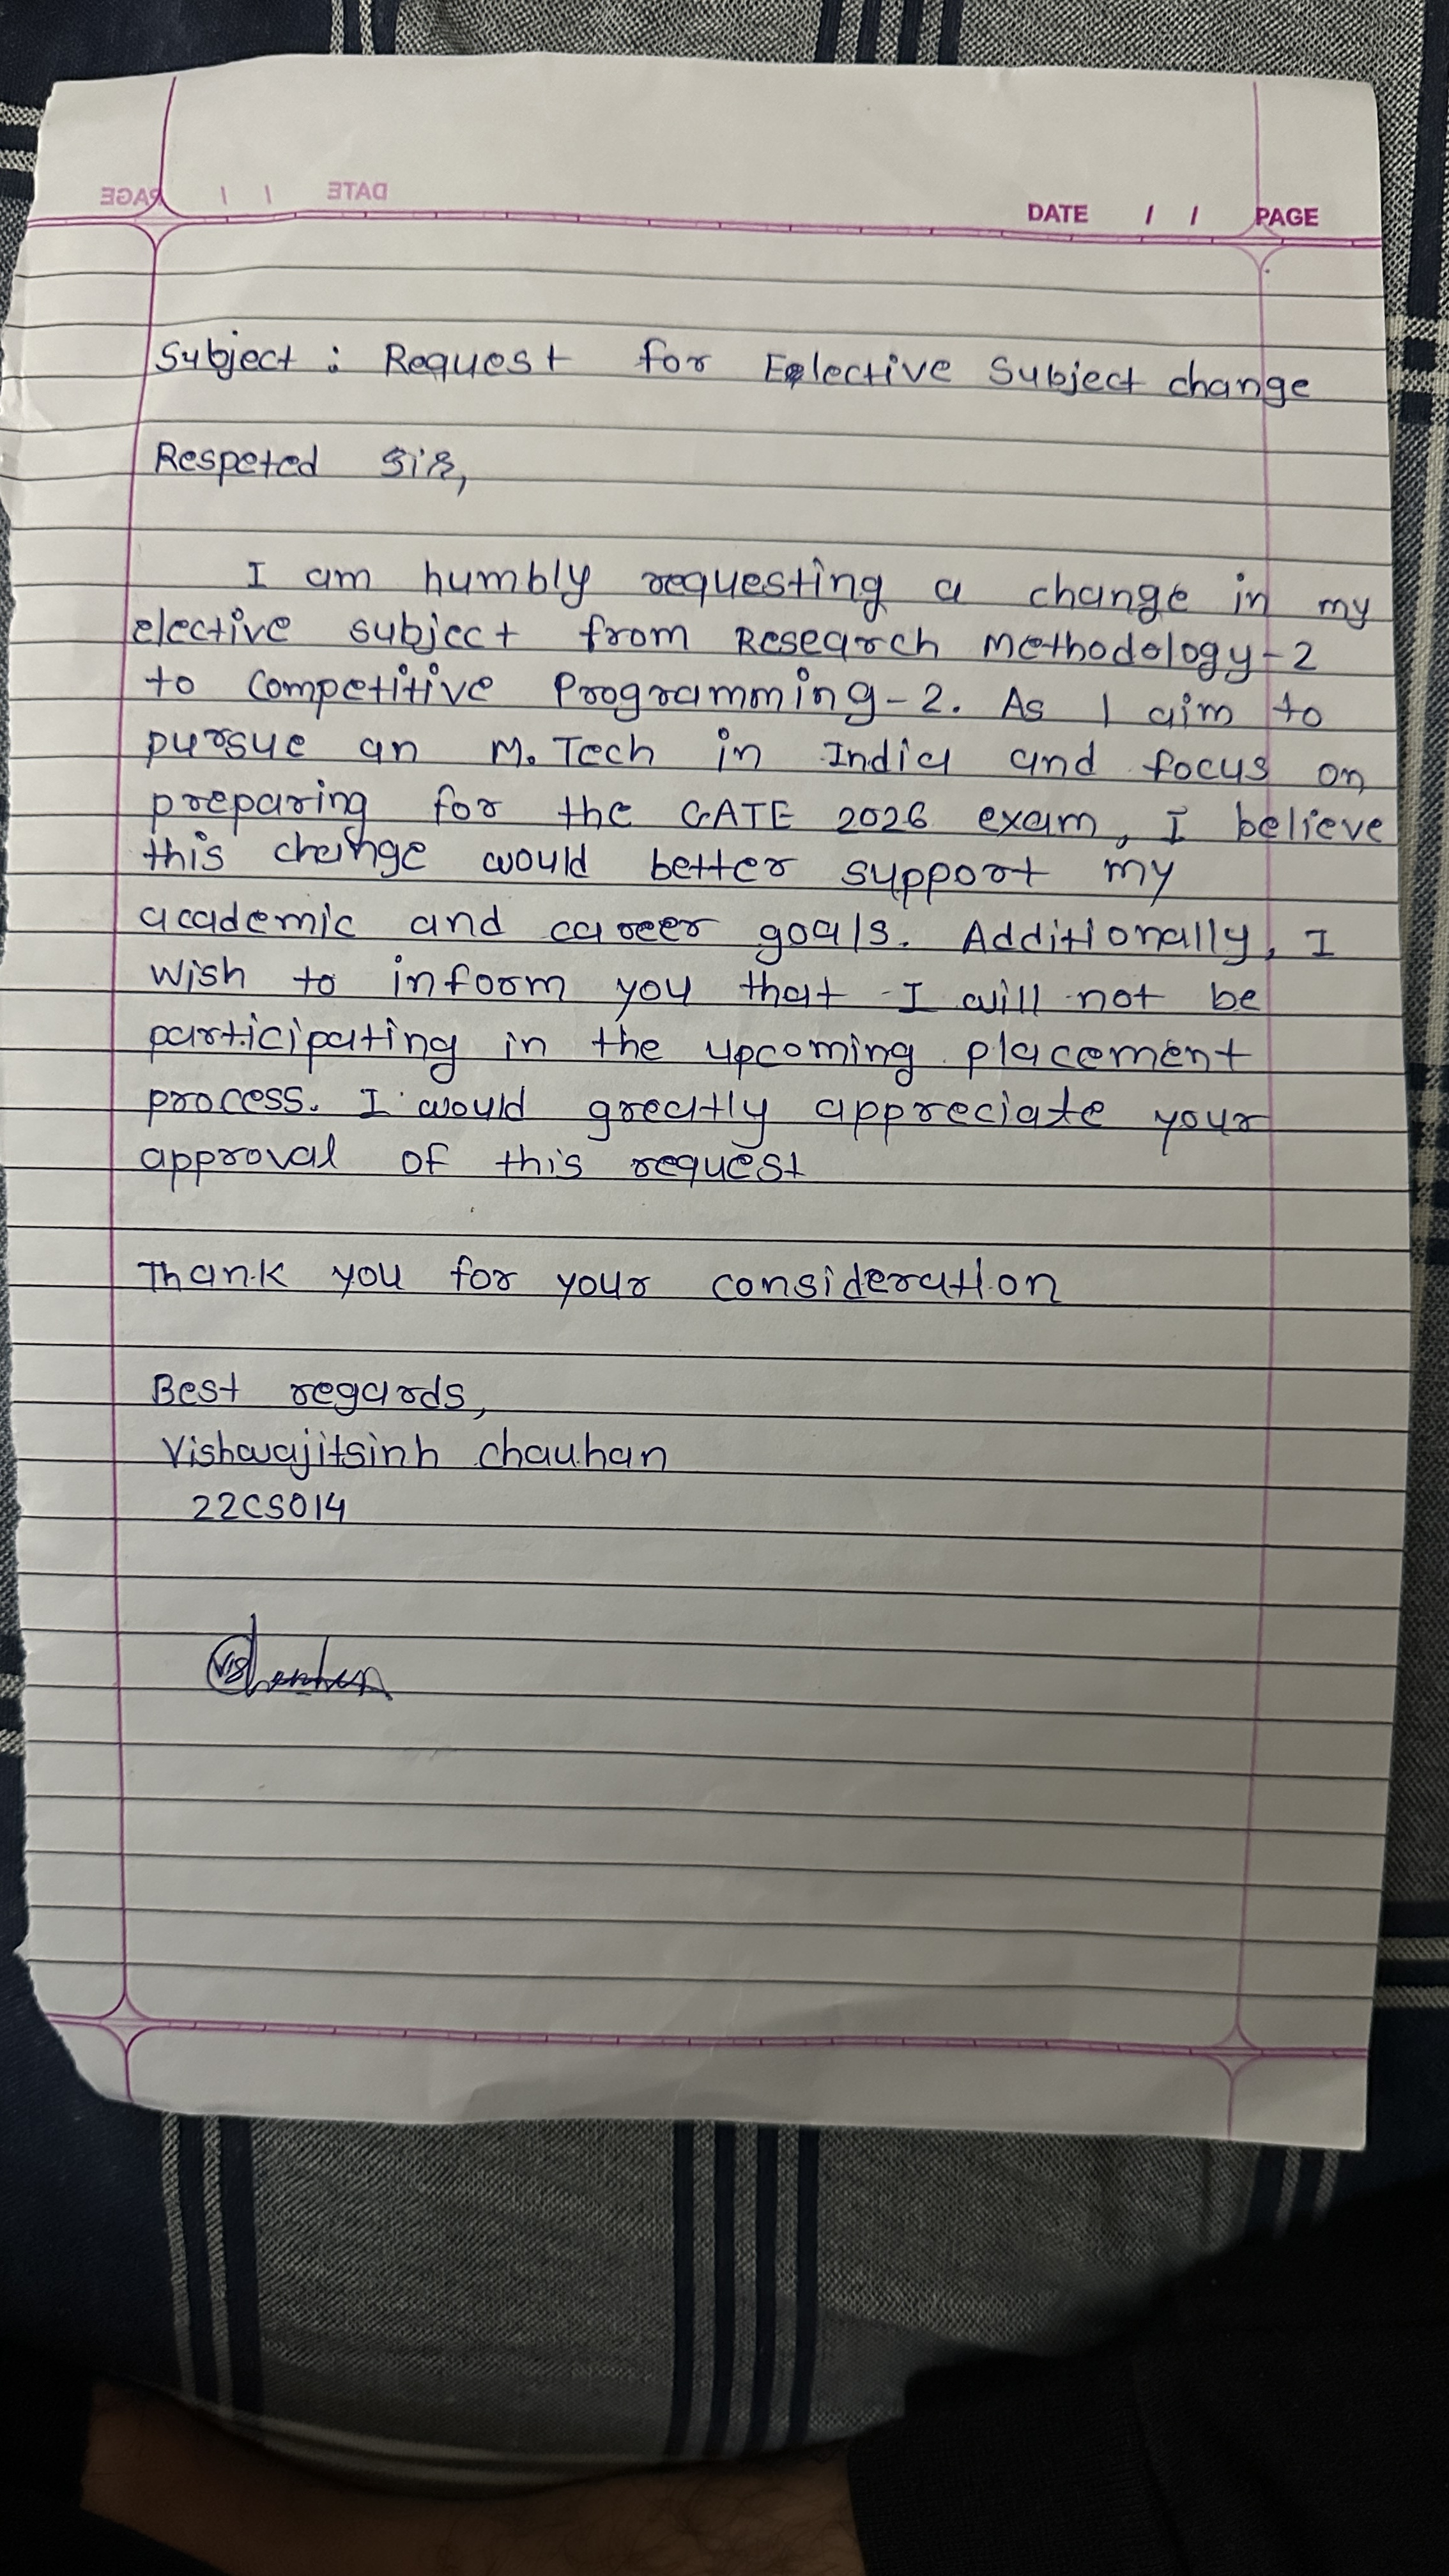 DATE / / PAGE
Subject : Request for Eelective Subject change
Respeted Sir,
I am humbly requesting a change in my
elective subject from Research Methodology-2
to Competitive Programming-2. As I aim to
pursue an M. Tech in India and focus on
preparing for the GATE 2026 exam, I believe
this change would better support my
academic and career goals. Additionally, I
wish to inform you that I will not be
participating in the upcoming placement
process. I would greatly appreciate your
approval of this request
Thank you for your consideration
Best regards,
Vishwajitsinh chauhan
22CS014